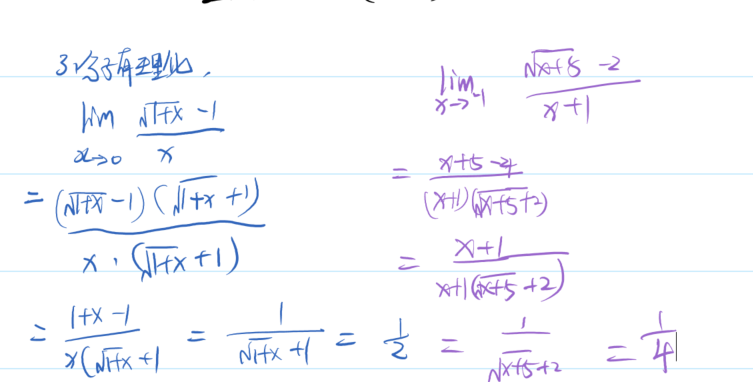 3、分子有理化.
lim x→0 (√(1+x) -1)/x
= (√(1+x) -1)(√(1+x) +1) / x·(√(1+x) +1)
= 1+x-1 / x(√(1+x) +1 = 1/(√(1+x) +1) = 1/2
lim x→-1 (√(x+5) -2)/(x+1)
= x+5-4 / (x+1)(√(x+5)+2)
= x+1 / x+1(√(x+5) +2)
= 1/(√(x+5)+2) = 1/4